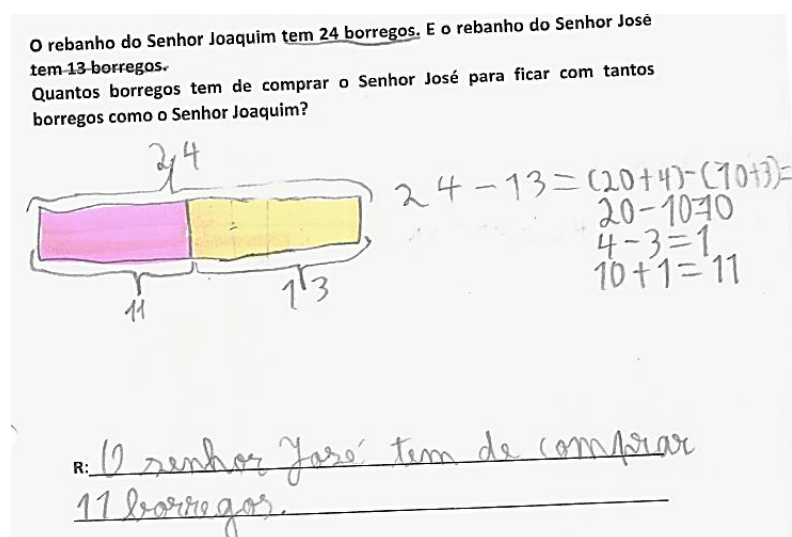 O rebanho do Senhor Joaquim tem 24 borregos. E o rebanho do Senhor José
tem 13 borregos.
Quantos borregos tem de comprar o Senhor José para ficar com tantos
borregos como o Senhor Joaquim?
24
11
13
24-13=(20+4)-(10+3)=
20-10=10
4-3=1
10+1=11
R: O senhor José tem de comprar
11 borregos.